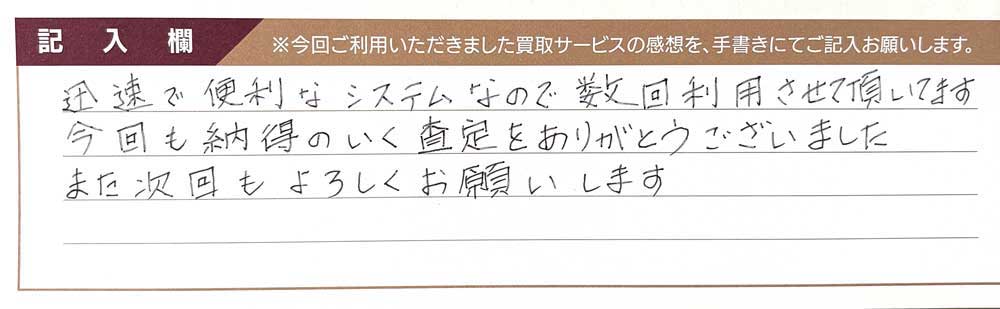 記入欄 ※今回ご利用いただきました買取サービスの感想を、手書きにてご記入お願いします。
迅速で便利なシステムなので数回利用させて頂いてます
今回も納得のいく査定をありがとうございました
また次回もよろしくお願いします